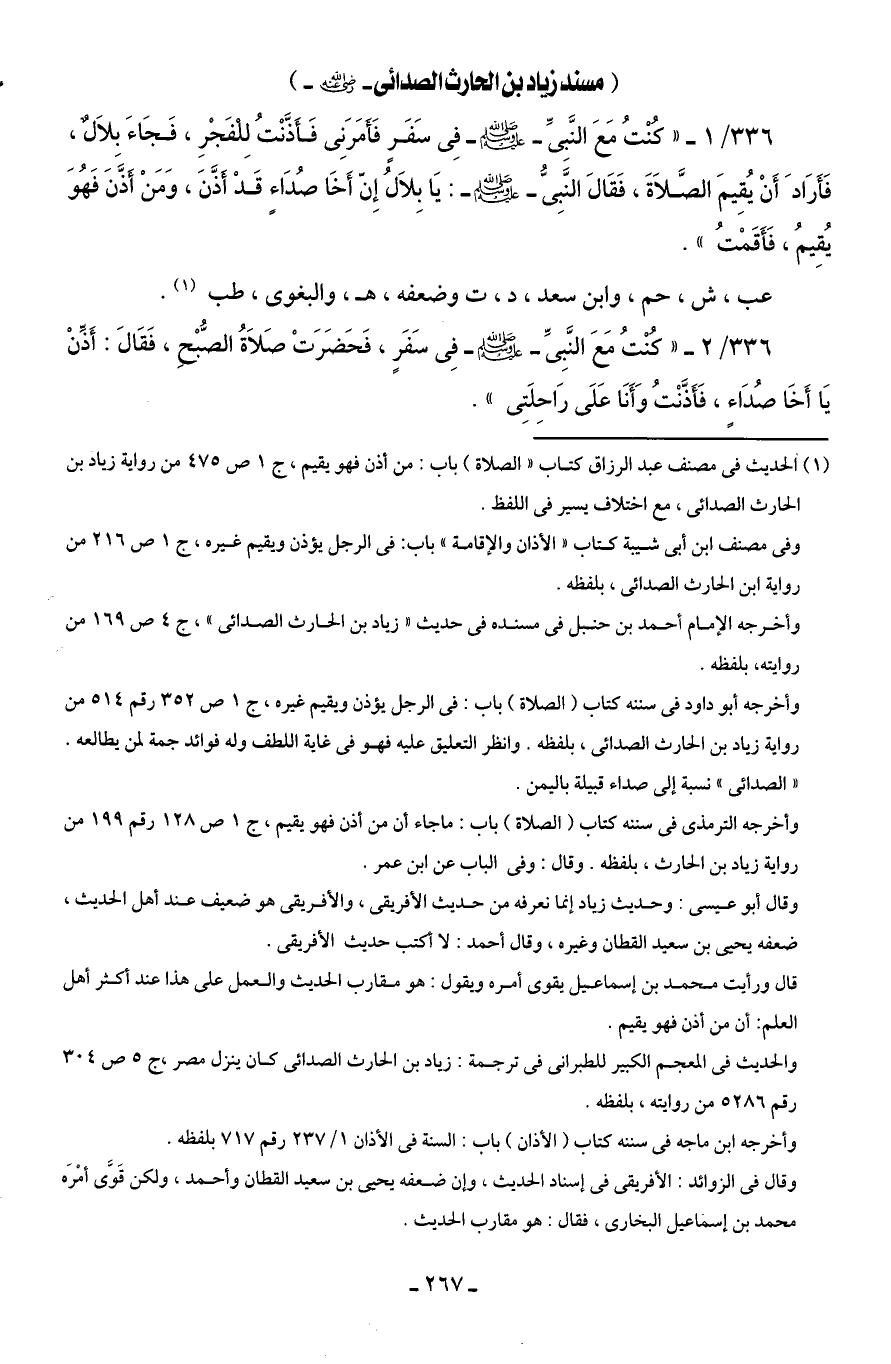 ( مسند زياد بن الحارث الصدائى ـ رضي الله عنه ـ )
٣٣٦/ ١ ـ « كُنْتُ مَعَ النَّبِىِّ ـ ﷺ ـ فِى سَفَرٍ فَأَمَرَنِى فَأَذَّنْتُ لِلْفَجْرِ ، فَجَاءَ بِلاَلٌ ،
فَأَرَادَ أَنْ يُقِيمَ الصَّلاَةَ ، فَقَالَ النَّبِىُّ ـ ﷺ ـ : يَا بِلاَلُ إِنّ أَخَا صُدَاءٍ قَدْ أَذَّنَ ، وَمَنْ أَذَّنَ فَهُوَ
يُقِيمُ ، فَأَقَمْتُ » .
عب ، ش ، حم ، وابن سعد ، د ، ت وضعفه ، هـ ، والبغوى ، طب (١) .
٣٣٦/ ٢ ـ « كُنْتُ مَعَ النَّبِىِّ ـ ﷺ ـ فِى سَفَرٍ ، فَحَضَرَتْ صَلاَةُ الصُّبْحِ ، فَقَالَ : أَذِّنْ
يَا أَخَا صُدَاءٍ ، فَأَذَّنْتُ وَأَنَا عَلَى رَاحِلَتِى » .
(١) الحديث فى مصنف عبد الرزاق كتاب « الصلاة ) باب : من أذن فهو يقيم ، ج ١ ص ٤٧٥ من رواية زياد بن
الحارث الصدائى ، مع اختلاف يسير فى اللفظ .
وفى مصنف ابن أبى شيبة كتاب « الأذان والإقامة » باب: فى الرجل يؤذن ويقيم غيره ، ج ١ ص ٢١٦ من
رواية ابن الحارث الصدائى ، بلفظه .
وأخرجه الإمام أحمد بن حنبل فى مسنده فى حديث « زياد بن الحارث الصدائى » ، ج ٤ ص ١٦٩ من
روايته، بلفظه .
وأخرجه أبو داود فى سننه كتاب ( الصلاة ) باب : فى الرجل يؤذن ويقيم غيره ، ج ١ ص ٣٥٢ رقم ٥١٤ من
رواية زياد بن الحارث الصدائى ، بلفظه . وانظر التعليق عليه فهو فى غاية اللطف وله فوائد جمة لمن يطالعه .
« الصدائى » نسبة إلى صداء قبيلة باليمن .
وأخرجه الترمذى فى سننه كتاب ( الصلاة ) باب : ماجاء أن من أذن فهو يقيم ، ج ١ ص ١٢٨ رقم ١٩٩ من
رواية زياد بن الحارث ، بلفظه . وقال : وفى الباب عن ابن عمر .
وقال أبو عيسى : وحديث زياد إنما نعرفه من حديث الأفريقى ، والأفريقى هو ضعيف عند أهل الحديث ،
ضعفه يحيى بن سعيد القطان وغيره ، وقال أحمد : لا أكتب حديث الأفريقى .
قال ورأيت محمد بن إسماعيل يقوى أمره ويقول : هو مقارب الحديث والعمل على هذا عند أكثر أهل
العلم: أن من أذن فهو يقيم .
والحديث فى المعجم الكبير للطبرانى فى ترجمة : زياد بن الحارث الصدائى كان ينزل مصر ،ج ٥ ص ٣٠٤
رقم ٥٢٨٦ من روايته ، بلفظه .
وأخرجه ابن ماجه فى سننه كتاب ( الأذان ) باب : السنة فى الأذان ١/ ٢٣٧ رقم ٧١٧ بلفظه .
وقال فى الزوائد : الأفريقى فى إسناد الحديث ، وإن ضعفه يحيى بن سعيد القطان وأحمد ، ولكن قَوَّى أمْرَه
محمد بن إسماعيل البخارى ، فقال : هو مقارب الحديث .
ـ ٢٦٧ ـ